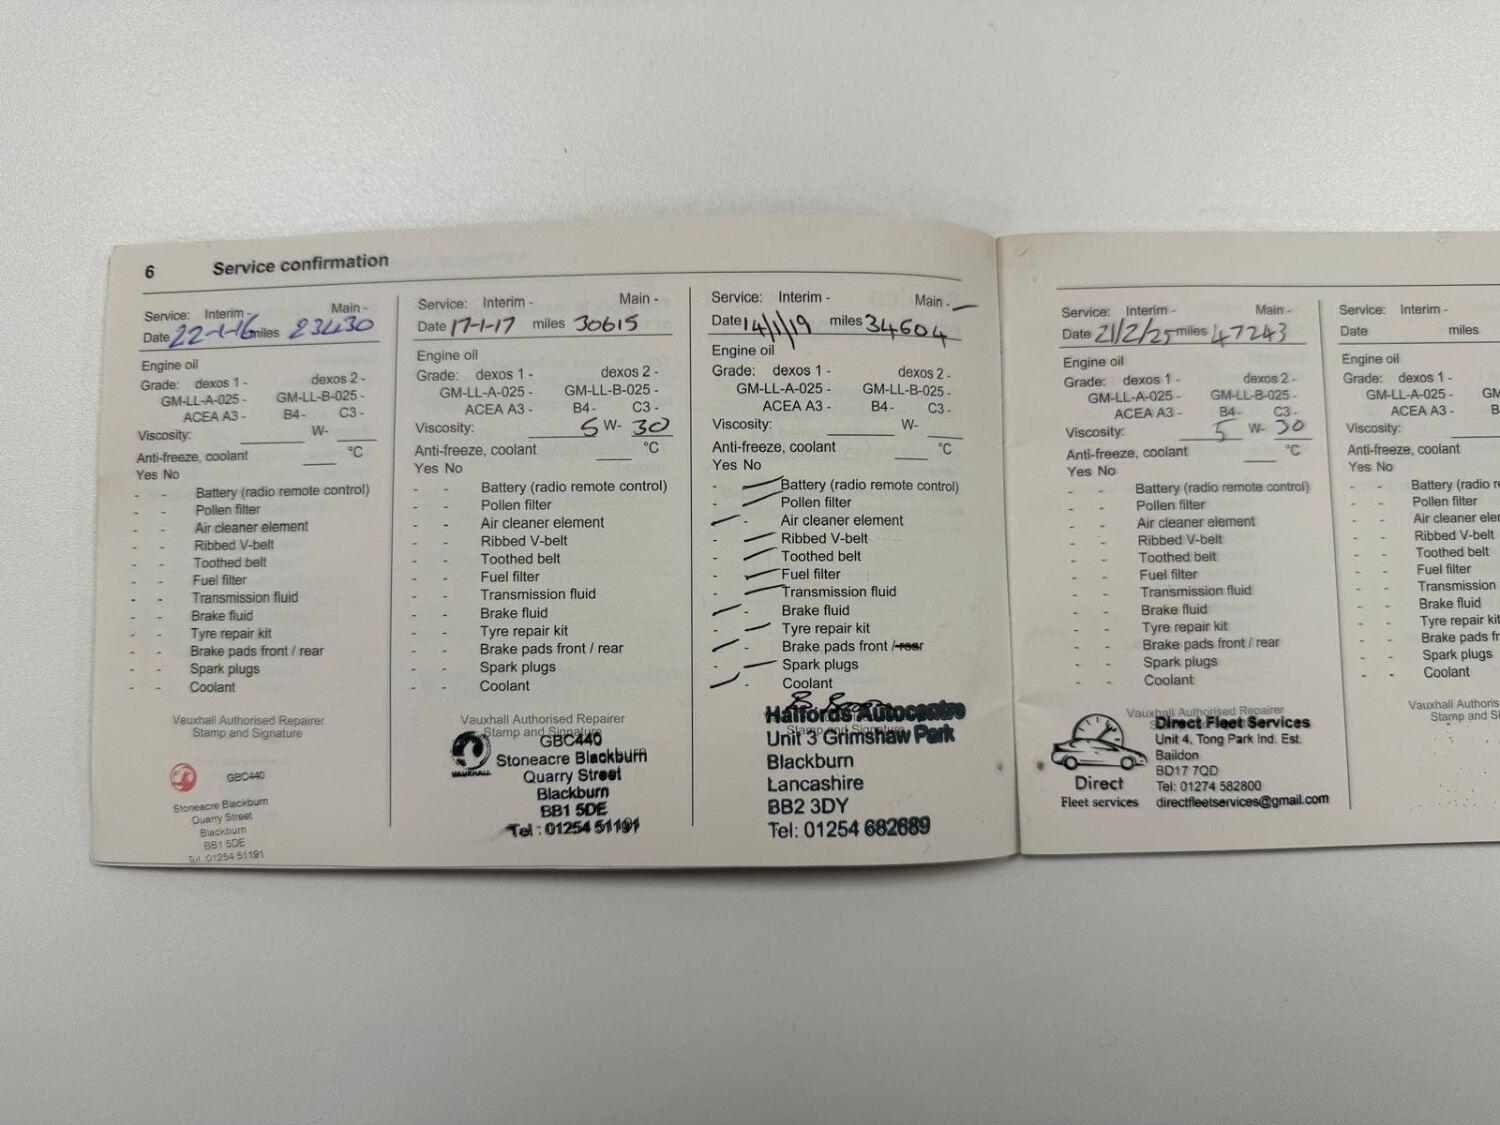 6 Service confirmation
Service: Interim - Main -
Date 22-1-16 miles 23430
Engine oil
Grade: dexos 1 - dexos 2 -
GM-LL-A-025 - GM-LL-B-025 -
ACEA A3 - B4 - C3 -
Viscosity: W-
Anti-freeze, coolant °C
Yes No
- - Battery (radio remote control)
- - Pollen filter
- - Air cleaner element
- - Ribbed V-belt
- - Toothed belt
- - Fuel filter
- - Transmission fluid
- - Brake fluid
- - Tyre repair kit
- - Brake pads front / rear
- - Spark plugs
- - Coolant
Vauxhall Authorised Repairer
Stamp and Signature
GBC440
Stoneacre Blackburn
Quarry Street
Blackburn
BB1 5DE
Tel: 01254 51191
Service: Interim - Main -
Date 17-1-17 miles 30615
Engine oil
Grade: dexos 1 - dexos 2 -
GM-LL-A-025 - GM-LL-B-025 -
ACEA A3 - B4 - C3 -
Viscosity: 5 W- 30
Anti-freeze, coolant °C
Yes No
- - Battery (radio remote control)
- - Pollen filter
- - Air cleaner element
- - Ribbed V-belt
- - Toothed belt
- - Fuel filter
- - Transmission fluid
- - Brake fluid
- - Tyre repair kit
- - Brake pads front / rear
- - Spark plugs
- - Coolant
Vauxhall Authorised Repairer
Stamp and Signature
VAUXHALL
GBC440
Stoneacre Blackburn
Quarry Street
Blackburn
BB1 5DE
Tel: 01254 51191
Service: Interim - Main -
Date 14/1/19 miles 34604
Engine oil
Grade: dexos 1 - dexos 2 -
GM-LL-A-025 - GM-LL-B-025 -
ACEA A3 - B4 - C3 -
Viscosity: W-
Anti-freeze, coolant °C
Yes No
- Battery (radio remote control)
- Pollen filter
- Air cleaner element
- Ribbed V-belt
- Toothed belt
- Fuel filter
- Transmission fluid
- Brake fluid
- Tyre repair kit
- Brake pads front / rear
- Spark plugs
- Coolant
Halfords Autocentre
Stamp and Signature
Unit 3 Grimshaw Park
Blackburn
Lancashire
BB2 3DY
Tel: 01254 682689
Service: Interim - Main -
Date 21/2/25 miles 47243
Engine oil
Grade: dexos 1 - dexos 2 -
GM-LL-A-025 - GM-LL-B-025 -
ACEA A3 - B4 - C3 -
Viscosity: 5 W- 30
Anti-freeze, coolant °C
Yes No
- - Battery (radio remote control)
- - Pollen filter
- - Air cleaner element
- - Ribbed V-belt
- - Toothed belt
- - Fuel filter
- - Transmission fluid
- - Brake fluid
- - Tyre repair kit
- - Brake pads front / rear
- - Spark plugs
- - Coolant
Vauxhall Authorised Repairer
Direct Fleet services
Direct Fleet Services
Unit 4, Tong Park Ind. Est.
Baildon
BD17 7QD
Tel: 01274 582800
directfleetservices@gmail.com
Service: Interim -
Date miles
Engine oil
Grade: dexos 1 -
GM-LL-A-025 - GM
ACEA A3 - B4
Viscosity:
Anti-freeze, coolant
Yes No
- - Battery (radio re
- - Pollen filter
- - Air cleaner eler
- - Ribbed V-belt
- - Toothed belt
- - Fuel filter
- - Transmission
- - Brake fluid
- - Tyre repair kit
- - Brake pads fr
- - Spark plugs
- - Coolant
Vauxhall Authorised
Stamp and Si